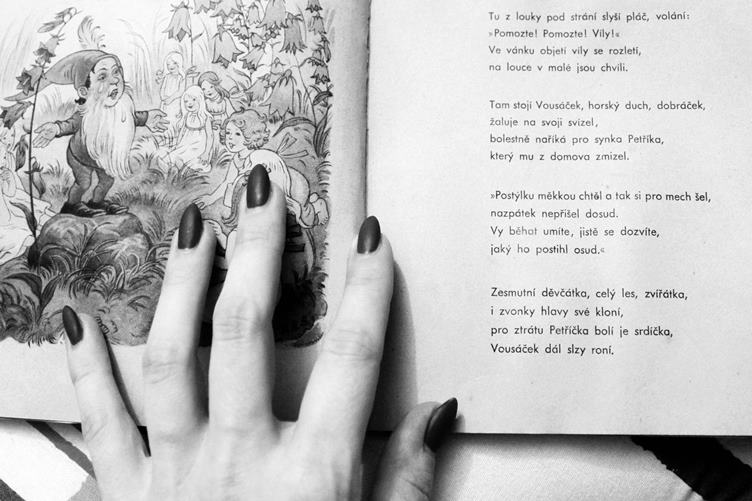 Tu z louky pod strání slyší pláč, volání:
»Pomozte! Pomozte! Víly!«
Ve vánku objetí víly se rozletí,
na louce v malé jsou chvíli.
Tam stojí Vousáček, horský duch, dobráček,
žaluje na svoji svízel,
bolestně naříká pro synka Petříka,
který mu z domova zmizel.
»Postýlku měkkou chtěl a tak si pro mech šel,
nazpátek nepřišel dosud.
Vy běhat umíte, jistě se dozvíte,
jaký ho postihl osud.«
Zesmutní děvčátka, celý les, zvířátka,
i zvonky hlavy své kloní,
pro ztrátu Petříčka bolí je srdíčka,
Vousáček dál slzy roní.